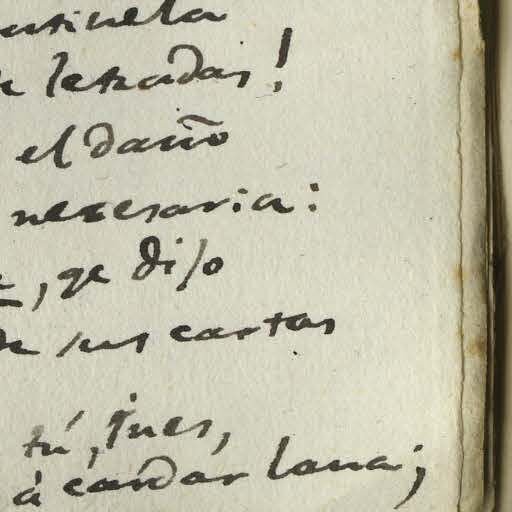 de letradas!
el daño
necesaria:
, qe dijo
de sus cartas
tú, pues,
á cardar lana;